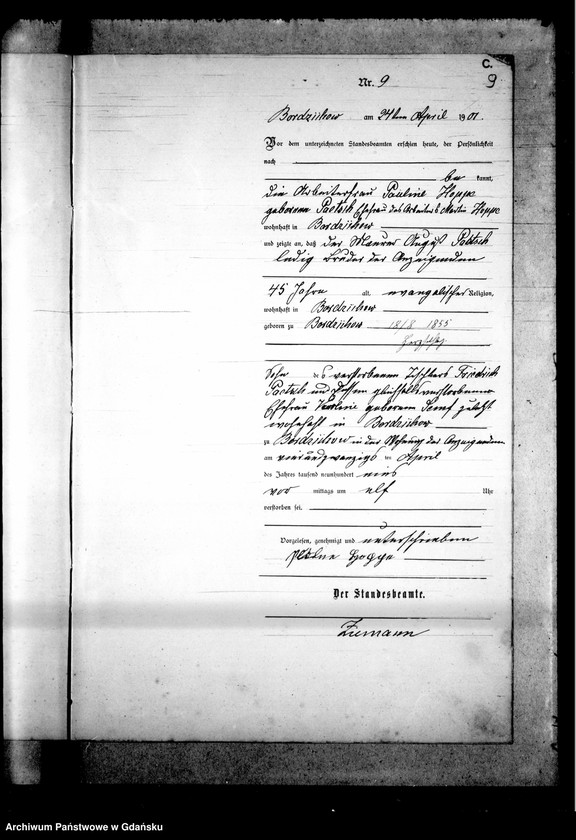 C.
Nr. 9
9
Bordzichow am 24ten April 1901.
Vor dem unterzeichneten Standesbeamten erschien heute, der Persönlichkeit
nach
be kannt,
die Arbeiterfrau Pauline Hoppe
geborene Paetsch Ehefrau des Arbeiters Martin Hoppe
wohnhaft in Bordzichow
und zeigte an, daß der Maurer August Paetsch
ledig Bruder der Anzeigenden
45 Jahre alt, evangelischer Religion,
wohnhaft in Bordzichow
geboren zu Bordzichow 18/8 1855
Sohn des verstorbenen Tischlers Friedrich
Paetsch und dessen gleichfalls verstorbenen
Ehefrau geborenen zuletzt
wohnhaft in Bordzichow
zu Bordzichow in der Wohnung der Anzeigenden
am vierundzwanzigs ten April
des Jahres tausend neunhundert eins
vor mittags um elf Uhr
verstorben sei.
Vorgelesen, genehmigt und unterschrieben
Hoppe
Der Standesbeamte.
Ziemann
Archiwum Państwowe w Gdańsku